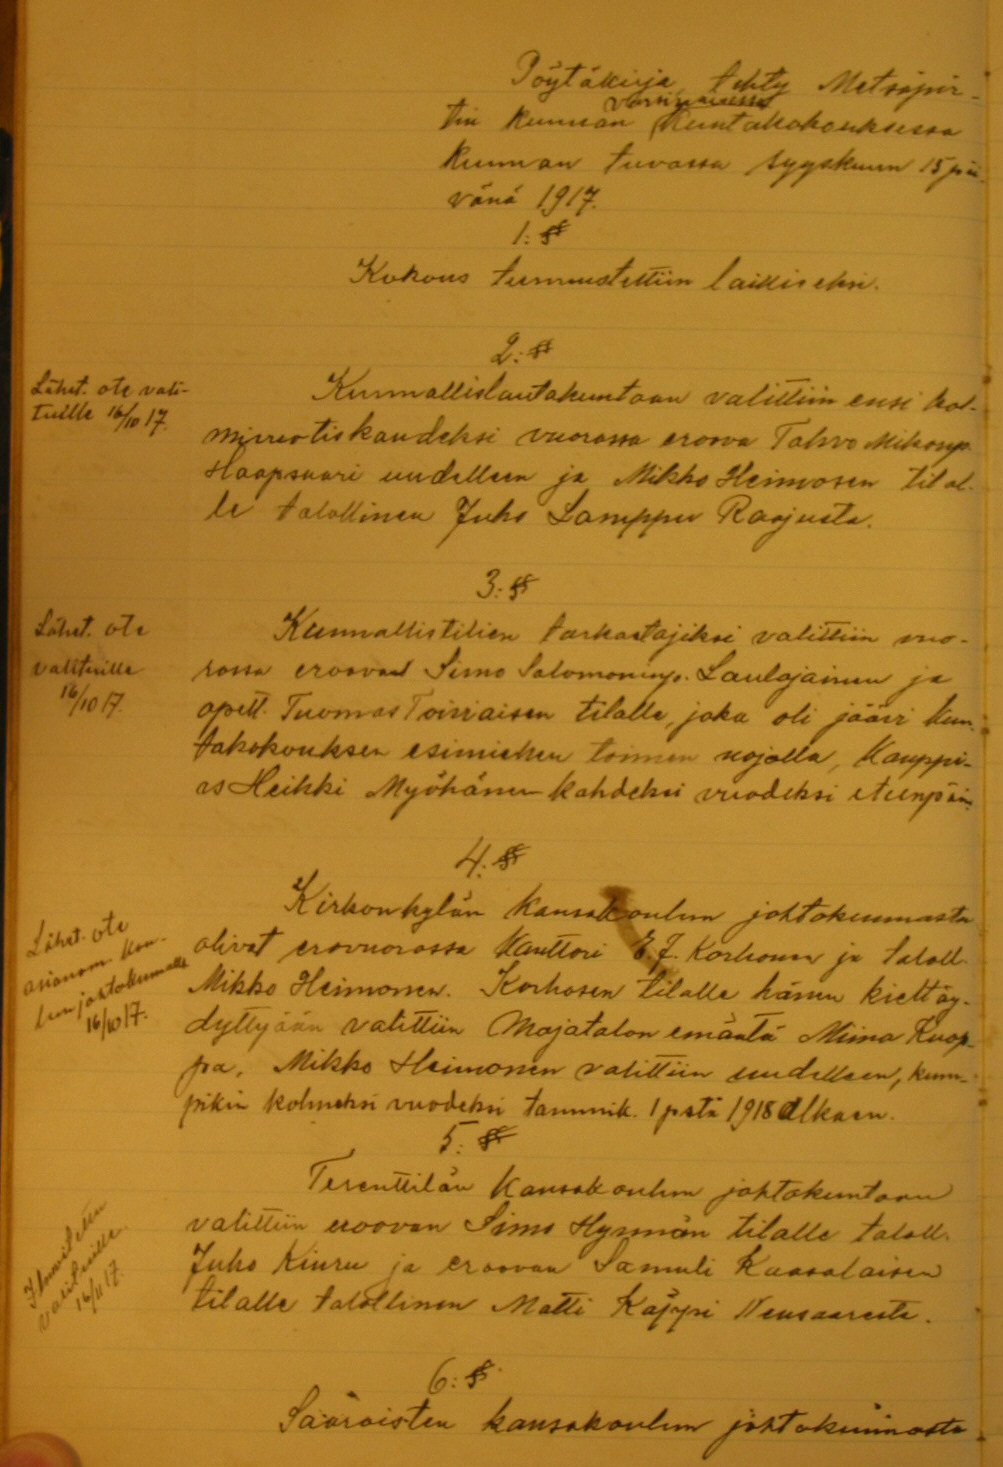 Pöytäkirja, tehty Metsäpir-
varsinaisessa
tin kunnan kuntakokouksessa
kunnan tuvassa syyskuun 15 päi-
vänä 1917.
1: §
Kokous tunnustettiin lailliseksi.
2: §
Lähet. ote vali-
tuille 16/10 17.
Kunnallislautakuntaan valittiin ensi kol-
mivuotiskaudeksi vuorossa eroova Tahvo Mikonp.
Haapsaari uudelleen ja Mikko Heimosen tilal-
le talollinen Juho Lamppu Raajusta.
3: §
Lähet. ote
valituille
16/10 17.
Kunnallistilien tarkastajiksi valittiin vuo-
rossa eroovat Simo Salomoninp. Laulajainen ja
opett. Tuomas Toiviaisen tilalle, joka oli jäävi kun-
takokouksen esimiehen toimen nojalla, kauppi-
as Heikki Myöhänen kahdeksi vuodeksi eteenpäin.
4: §
Lähet. ote
asianom. kou-
lun johtokunnalle
16/10 17.
Kirkonkylän kansakoulun johtokunnasta
olivat erovuorossa kanttori E. J. Korhonen ja taloll.
Mikko Heimonen. Korhosen tilalle hänen kieltäy-
dyttyään valittiin Majatalon emäntä Miina Kuop-
pa, Mikko Heimonen valittiin uudelleen, kum-
pikin kolmeksi vuodeksi tammik. 1 pstä 1918 alkaen.
5: §
Ilmoitettu
valituille
16/11 17.
Terenttilän kansakoulun johtokuntaan
valittiin eroovan Simo Hynnän tilalle taloll.
Juho Kiuru ja eroovan Samuli Kaasalaisen
tilalle talollinen Matti Käppi Neusaaresta.
6: §
Saaroisten kansakoulun johtokunnasta